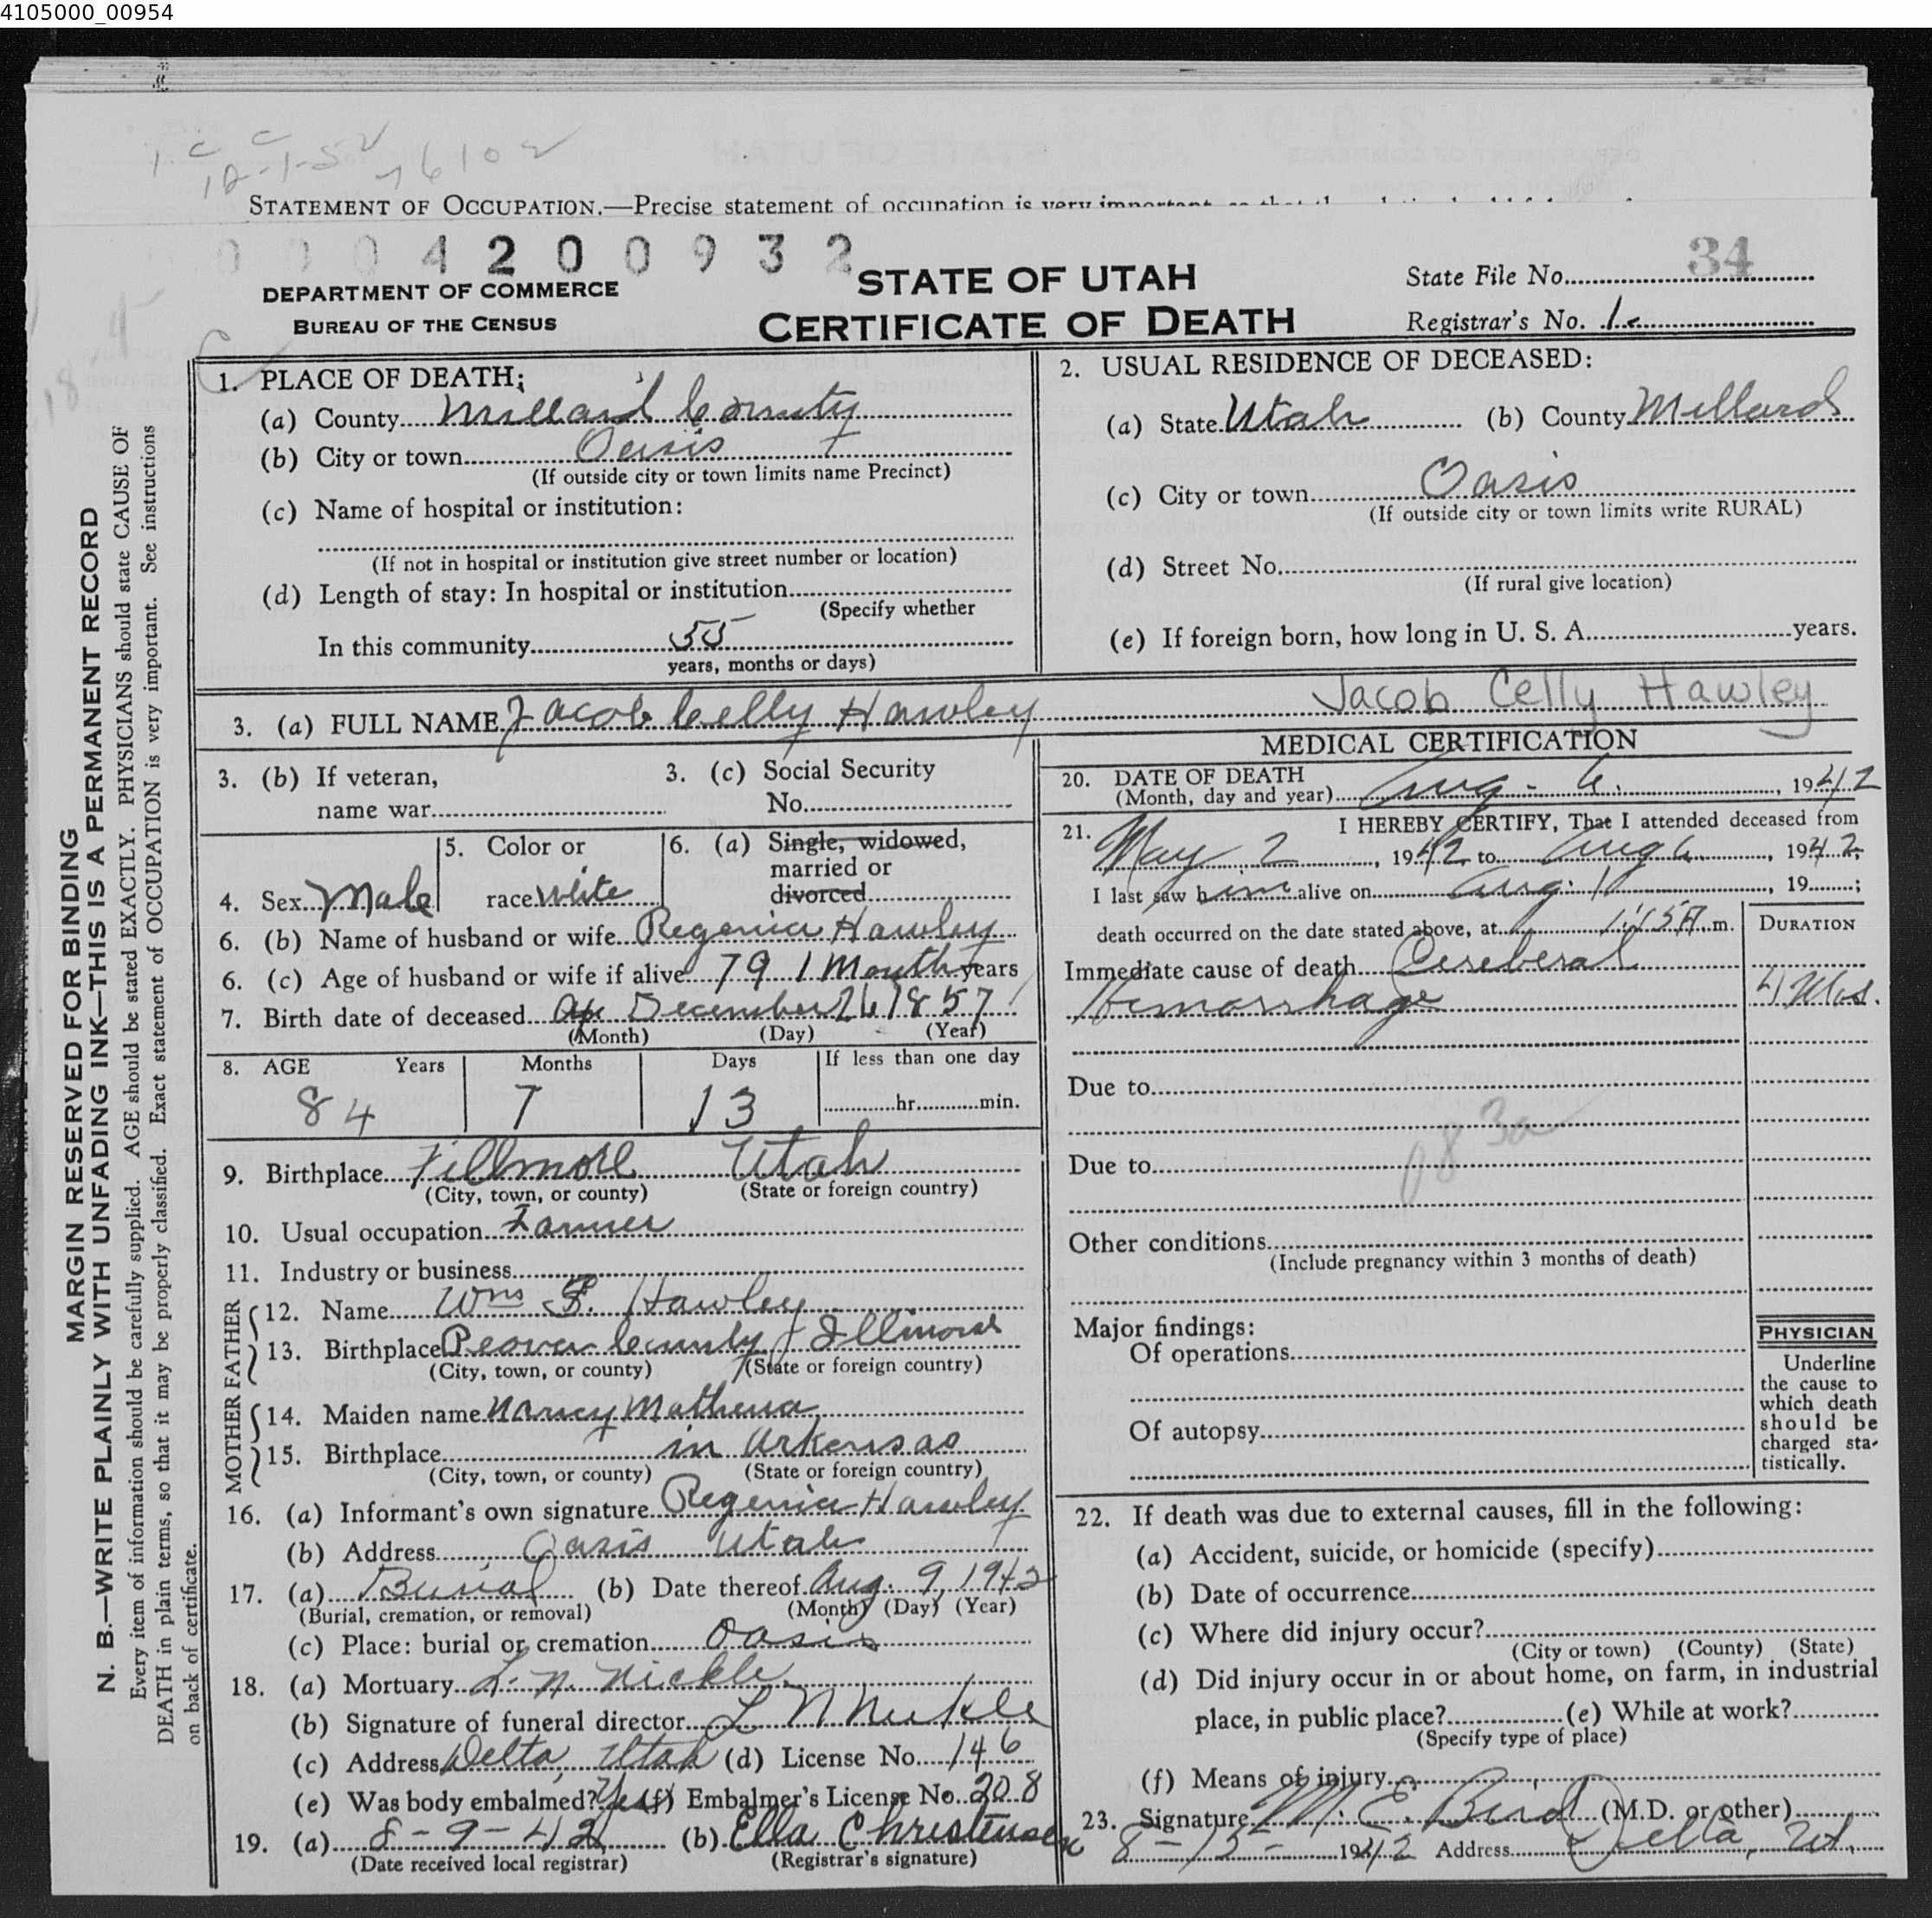 4105000_00954
STATEMENT OF OCCUPATION.—Precise statement of occupation is very important
0004200932
DEPARTMENT OF COMMERCE
BUREAU OF THE CENSUS
STATE OF UTAH
CERTIFICATE OF DEATH
State File No. 34
Registrar's No. 1
MARGIN RESERVED FOR BINDING
N. B.—WRITE PLAINLY WITH UNFADING INK—THIS IS A PERMANENT RECORD
Every item of information should be carefully supplied. AGE should be stated EXACTLY. PHYSICIANS should state CAUSE OF
DEATH in plain terms, so that it may be properly classified. Exact statement of OCCUPATION is very important. See instructions
on back of certificate.
1. PLACE OF DEATH:
(a) County Millard County
(b) City or town Oasis
(If outside city or town limits name Precinct)
(c) Name of hospital or institution:
(If not in hospital or institution give street number or location)
(d) Length of stay: In hospital or institution
(Specify whether
In this community 55
years, months or days)
2. USUAL RESIDENCE OF DECEASED:
(a) State Utah (b) County Millard
(c) City or town Oasis
(If outside city or town limits write RURAL)
(d) Street No.
(If rural give location)
(e) If foreign born, how long in U. S. A. years.
3. (a) FULL NAME Jacob Celly Hawley Jacob Celly Hawley
3. (b) If veteran,
name war
3. (c) Social Security
No.
4. Sex Male
5. Color or
race White
6. (a) Single, widowed,
married or
divorced
6. (b) Name of husband or wife Regenia Hawley
6. (c) Age of husband or wife if alive 79 1 Month years
7. Birth date of deceased December 24 1857
(Month) (Day) (Year)
8. AGE Years Months Days If less than one day
84 7 13 hr. min.
9. Birthplace Fillmore Utah
(City, town, or county) (State or foreign country)
10. Usual occupation Farmer
11. Industry or business
FATHER
12. Name Wm F. Hawley
13. Birthplace County Illinois
(City, town, or county) (State or foreign country)
MOTHER
14. Maiden name Nancy Mathena
15. Birthplace in Arkensas
(City, town, or county) (State or foreign country)
16. (a) Informant's own signature Regenia Hawley
(b) Address Oasis Utah
17. (a) Burial (b) Date thereof Aug. 9, 1942
(Burial, cremation, or removal) (Month) (Day) (Year)
(c) Place: burial or cremation Oasis
18. (a) Mortuary L. N. Nickle
(b) Signature of funeral director L N Nickle
(c) Address Delta, Utah (d) License No. 146
(e) Was body embalmed? Yes (f) Embalmer's License No. 208
19. (a) 8-9-42 (b) Ella Christensen
(Date received local registrar) (Registrar's signature)
MEDICAL CERTIFICATION
20. DATE OF DEATH
(Month, day and year) Aug - 6, 1942
21. I HEREBY CERTIFY, That I attended deceased from
May 2, 1942 to Aug 6, 1942;
I last saw him alive on Aug. 1, 19 ;
death occurred on the date stated above, at 1:15 A. m.
DURATION
Immediate cause of death Cereberal
Hemorrhage 4 Mos.
Due to
083a
Due to
Other conditions
(Include pregnancy within 3 months of death)
Major findings:
Of operations
Of autopsy
PHYSICIAN
Underline
the cause to
which death
should be
charged sta-
tistically.
22. If death was due to external causes, fill in the following:
(a) Accident, suicide, or homicide (specify)
(b) Date of occurrence
(c) Where did injury occur?
(City or town) (County) (State)
(d) Did injury occur in or about home, on farm, in industrial
place, in public place? (e) While at work?
(Specify type of place)
(f) Means of injury
23. Signature M. E. Bird (M.D. or other)
8-15- 1942 Address Delta, Ut.